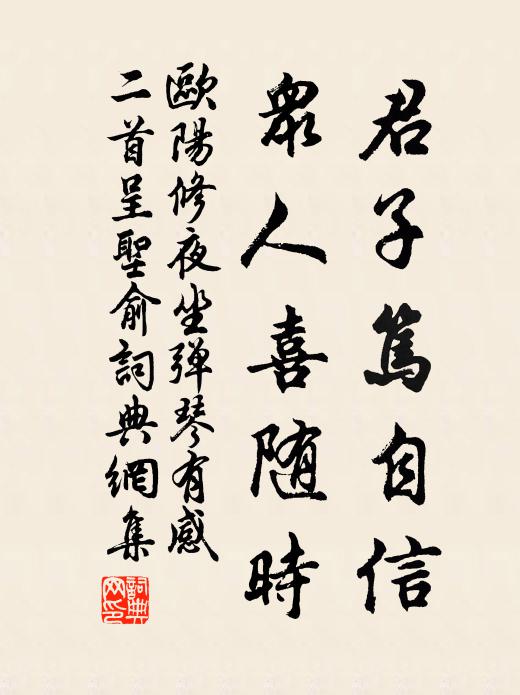 君子篤自信
眾人喜随時
歐陽修夜坐弹琴有感
二首呈聖俞詞典網集
詞典网印